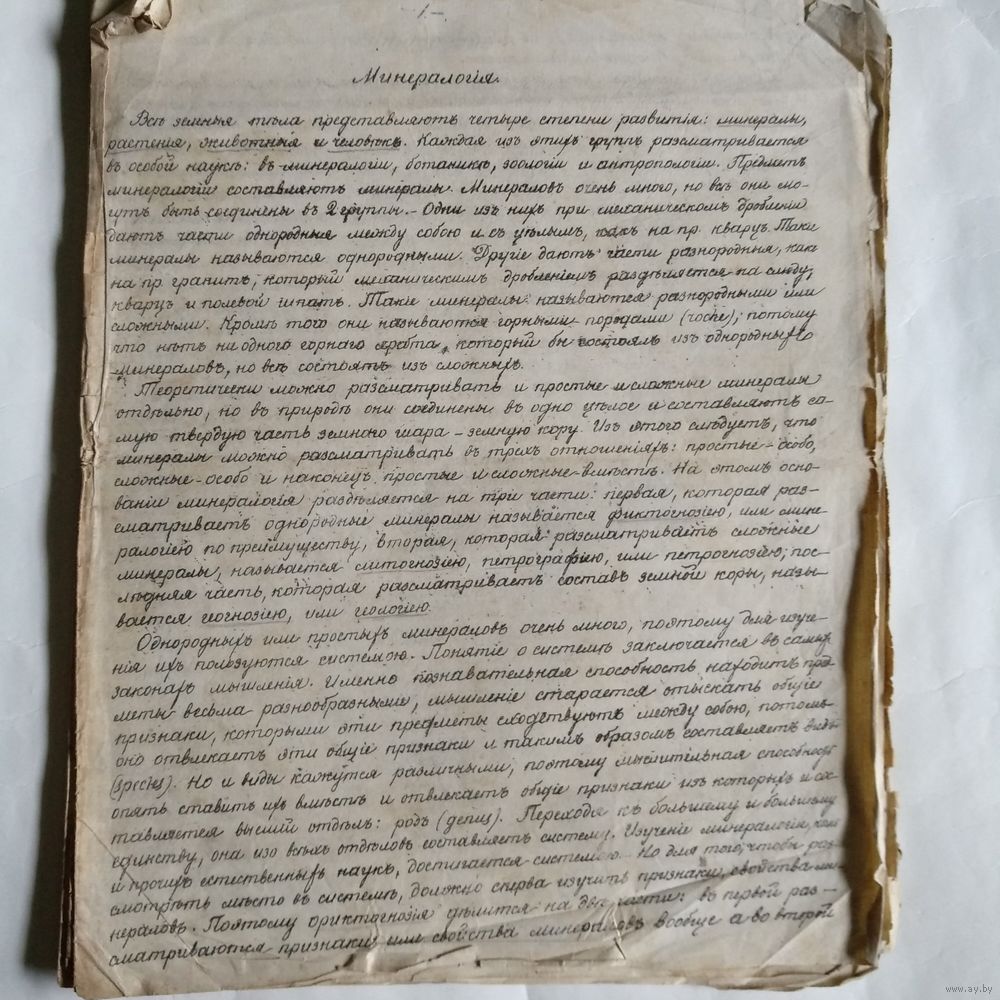 -1-
Минералогія.
Всѣ земныя тѣла представляютъ четыре степени развитія: минералы,
растения, животныя и человѣкъ. Каждая изъ этихъ группъ разсматривается
въ особой наукѣ: въ минералогіи, ботаникѣ, зоологіи и антропологіи. Предметъ
минералогіи составляютъ минералы. Минераловъ очень много, но всѣ они мо-
гутъ быть соединены въ 2 группы. - Одни изъ нихъ при механическомъ дробленіи
даютъ части однородныя между собою и съ цѣлымъ, какъ на пр. кварцъ. Такіе
минералы называются однородными. Другіе даютъ части разнородныя, какъ
на пр. гранитъ, который механическимъ дробленіемъ раздѣляется на слюду,
кварцъ и полевой шпатъ. Такіе минералы называются разнородными или
сложными. Кромѣ того они называются горными породами (roche); потому
что нѣтъ ни одного горнаго хребта, который бы состоялъ изъ однородныхъ
минераловъ, но всѣ состоятъ изъ сложныхъ.
Теоретически можно разсматривать и простые и сложные минералы
отдѣльно, но въ природѣ они соединены въ одно цѣлое и составляютъ са-
мую твердую часть земного шара - земную кору. Изъ этого слѣдуетъ, что
минералы можно разсматривать въ трехъ отношеніяхъ: простые - особо,
сложные - особо и наконецъ простые и сложные - вмѣстѣ. На этомъ осно-
ваніи минералогія раздѣляется на три части: первая, которая раз-
сматриваетъ однородные минералы называется ориктогнозіею, или мине-
ралогіею по преимуществу, вторая, которая разсматриваетъ сложные
минералы, называется литогнозіею, петрографіею, или петрогнозіею; пос-
лѣдняя часть, которая разсматриваетъ составъ земной коры, назы-
вается геогнозіею, или геологіею.
Однородныхъ или простыхъ минераловъ очень много, поэтому для изуче-
нія ихъ пользуются системою. Понятіе о системѣ заключается въ самыхъ
законахъ мышленія. Именно познавательная способность находитъ пред-
меты весьма разнообразными, мышленіе старается отыскать общіе
признаки, которыми эти предметы сходствуютъ между собою, потомъ
оно отвлекаетъ эти общіе признаки и такимъ образомъ составляетъ виды
(species). Но и виды кажутся различными, поэтому мыслительная способность
опять ставитъ ихъ вмѣстѣ и отвлекаетъ общіе признаки изъ которыхъ и сос-
тавляется высшій отдѣлъ: родъ (genus). Переходя къ большему и большему
единству, она изо всѣхъ отдѣловъ составляетъ систему. Изученіе минералогіи, какъ
и прочихъ естественныхъ наукъ, достигается системою. - Но для того, чтобы раз-
смотрѣть мѣсто въ системѣ, должно сперва изучить признаки, свойства ми-
нераловъ. Поэтому ориктогнозія дѣлится на двѣ части: въ первой раз-
сматриваются признаки или свойства минераловъ вообще а во второй
www.ay.by